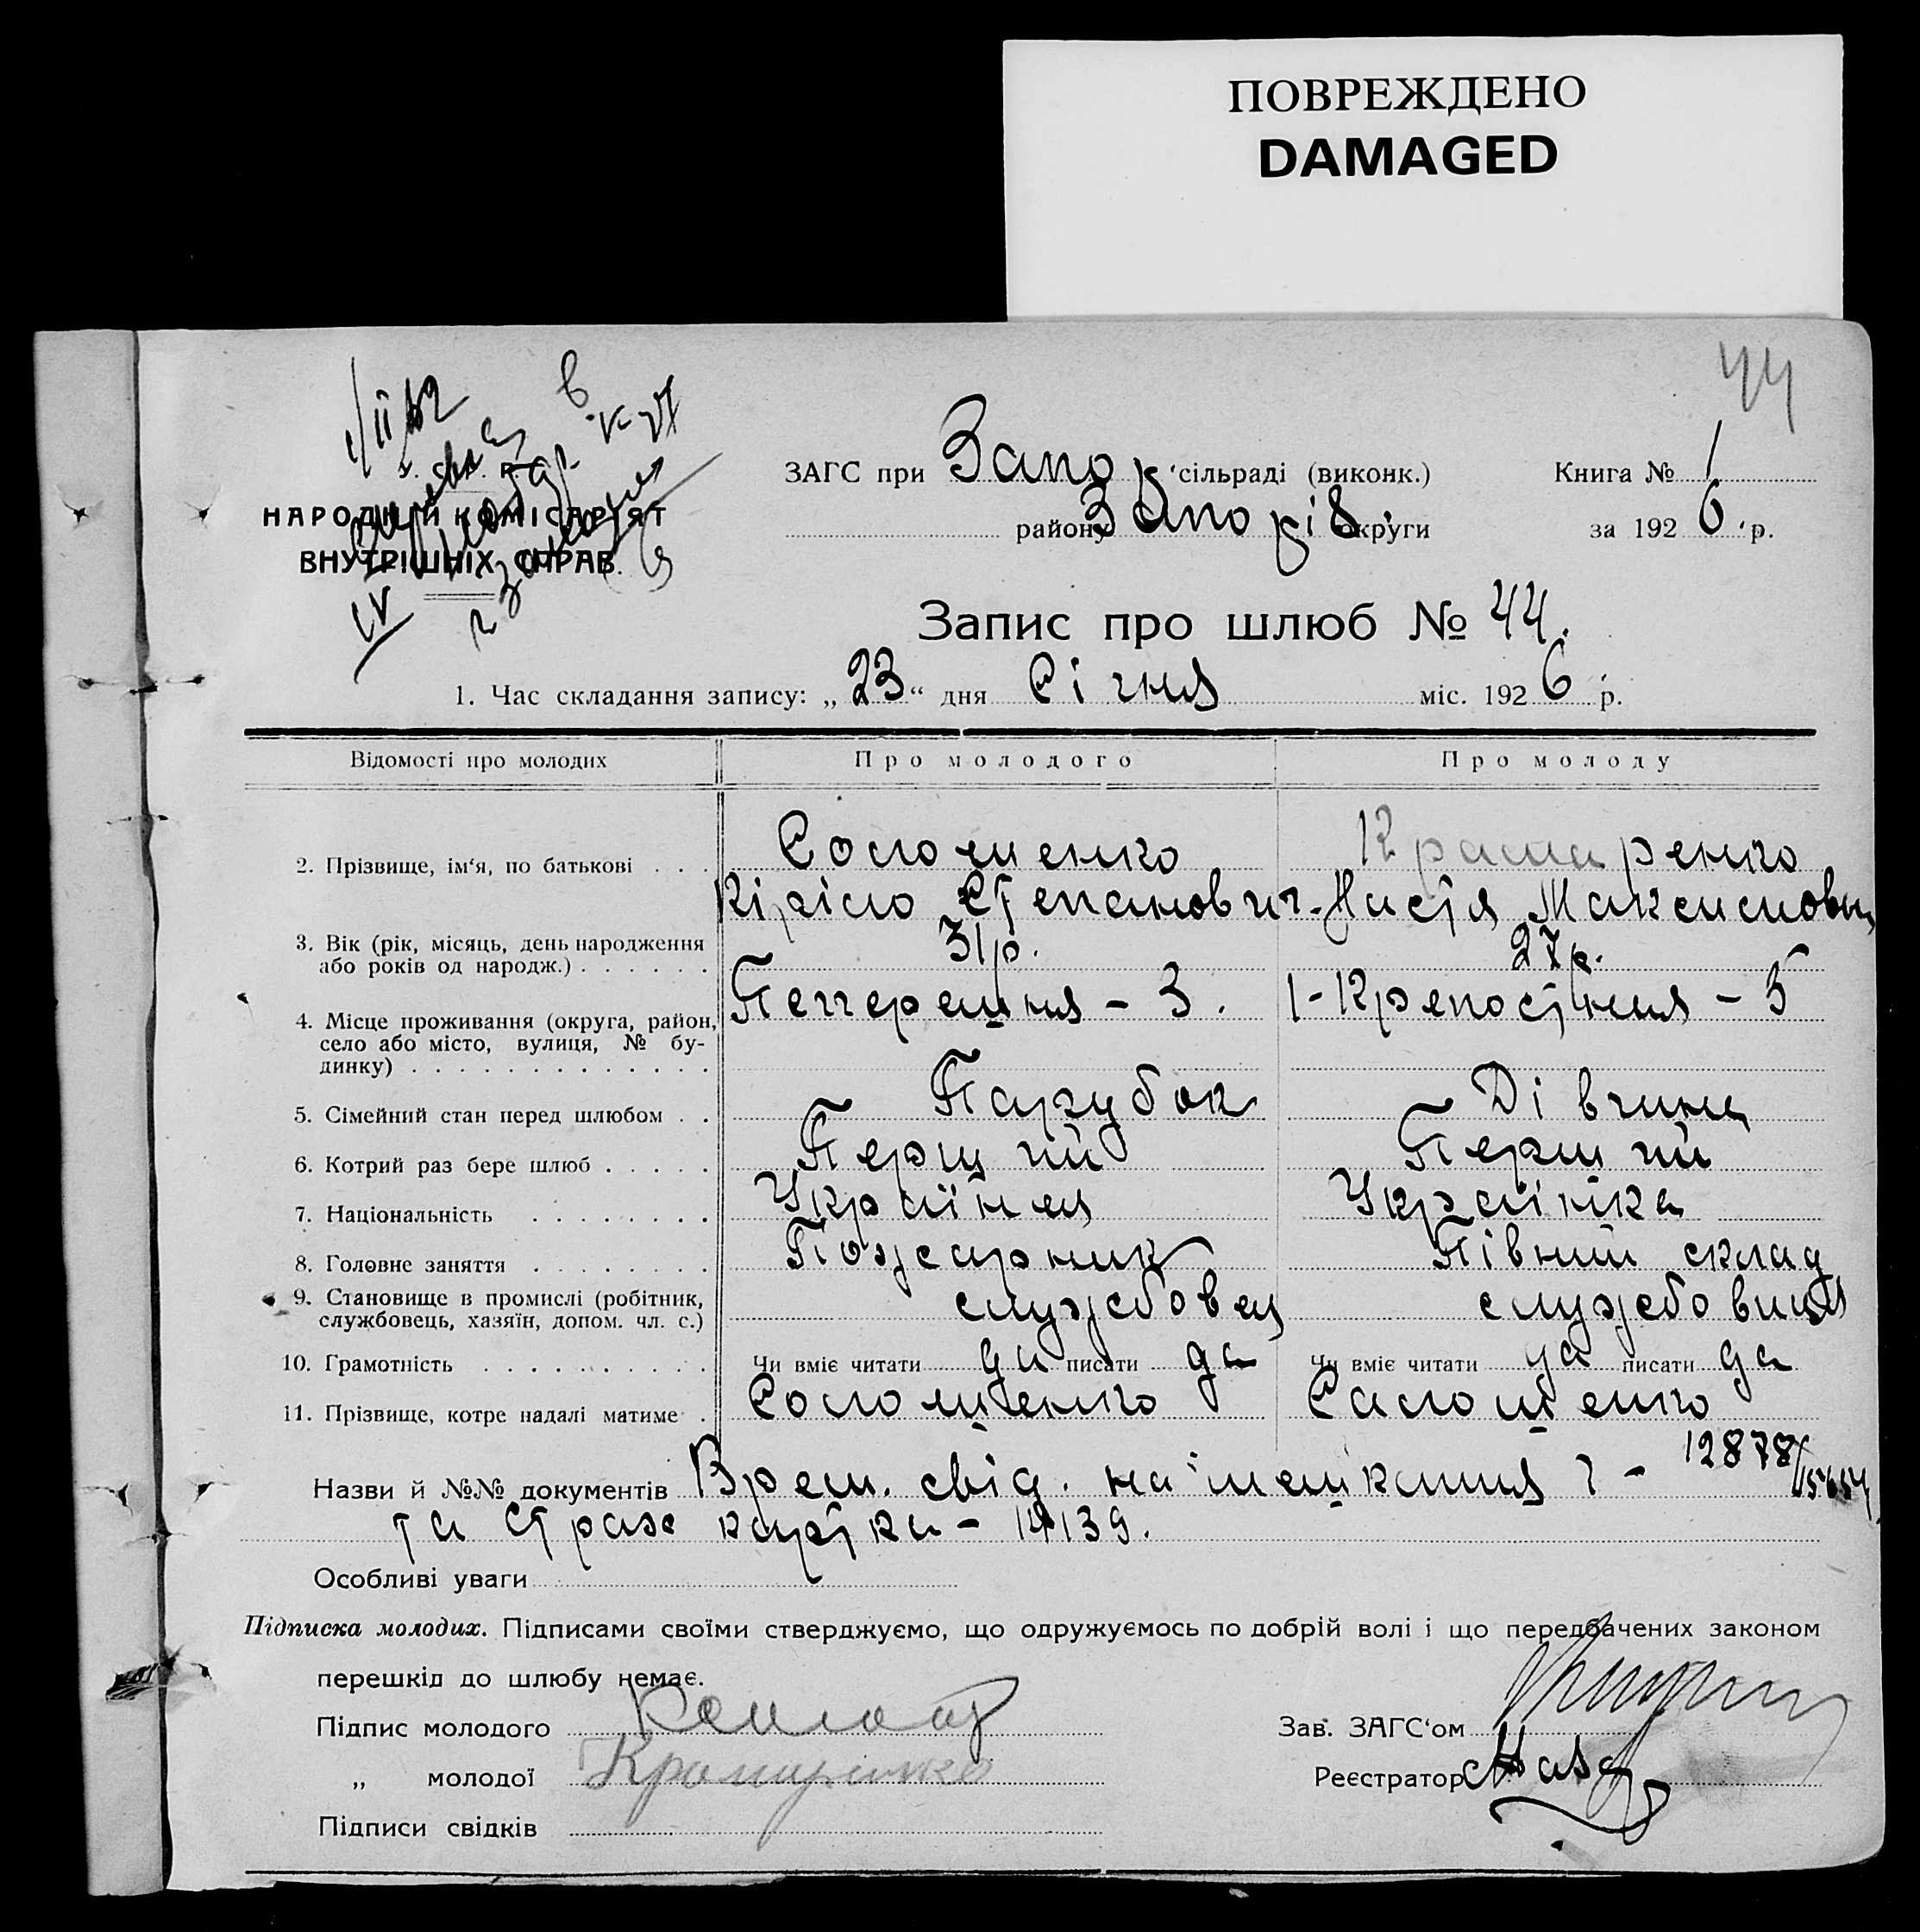 ПОВРЕЖДЕНО
DAMAGED
44
У. С. Р. Р.
НАРОДНІЙ КОМІСАРІЯТ
ВНУТРІШНІХ СПРАВ.
ЗАГС при Запор. сільраді (виконк.) Книга № 1
району Запорі округи за 1926 р.
Запис про шлюб № 44.
1. Час складання запису: „23“ дня Січня міс. 1926 р.
Відомості про молодих Про молодого Про молоду
2. Прізвище, ім‘я, по батькові Соломченко Крамаренко
Кіріло Степанович Настя Максимовна
3. Вік (рік, місяць, день народження 31р. 27р.
або років од народж.)
4. Місце проживання (округа, район, - 3. 1-Крепостная - 5
село або місто, вулиця, № бу-
динку)
5. Сімейний стан перед шлюбом Парубок Дівчина
6. Котрий раз бере шлюб Перший Перший
7. Національність Українец Українка
8. Головне заняття Пожарник Півний склад
9. Становище в промислі (робітник, службовец службовиця
службовець, хазяїн, допом. чл. с.)
10. Грамотність Чи вміє читати да писати да Чи вміє читати да писати да
11. Прізвище, котре надалі матиме
Назви й №№ документів Врем. свід. на мешкання 12878/15654
та Страх картка - 14139.
Особливі уваги
Підписка молодих. Підписами своїми стверджуємо, що одружуємось по добрій волі і що передбачених законом
перешкід до шлюбу немає.
Підпис молодого Зав. ЗАГС‘ом
„ молодої Крамаренко Реєстратор
Підписи свідків